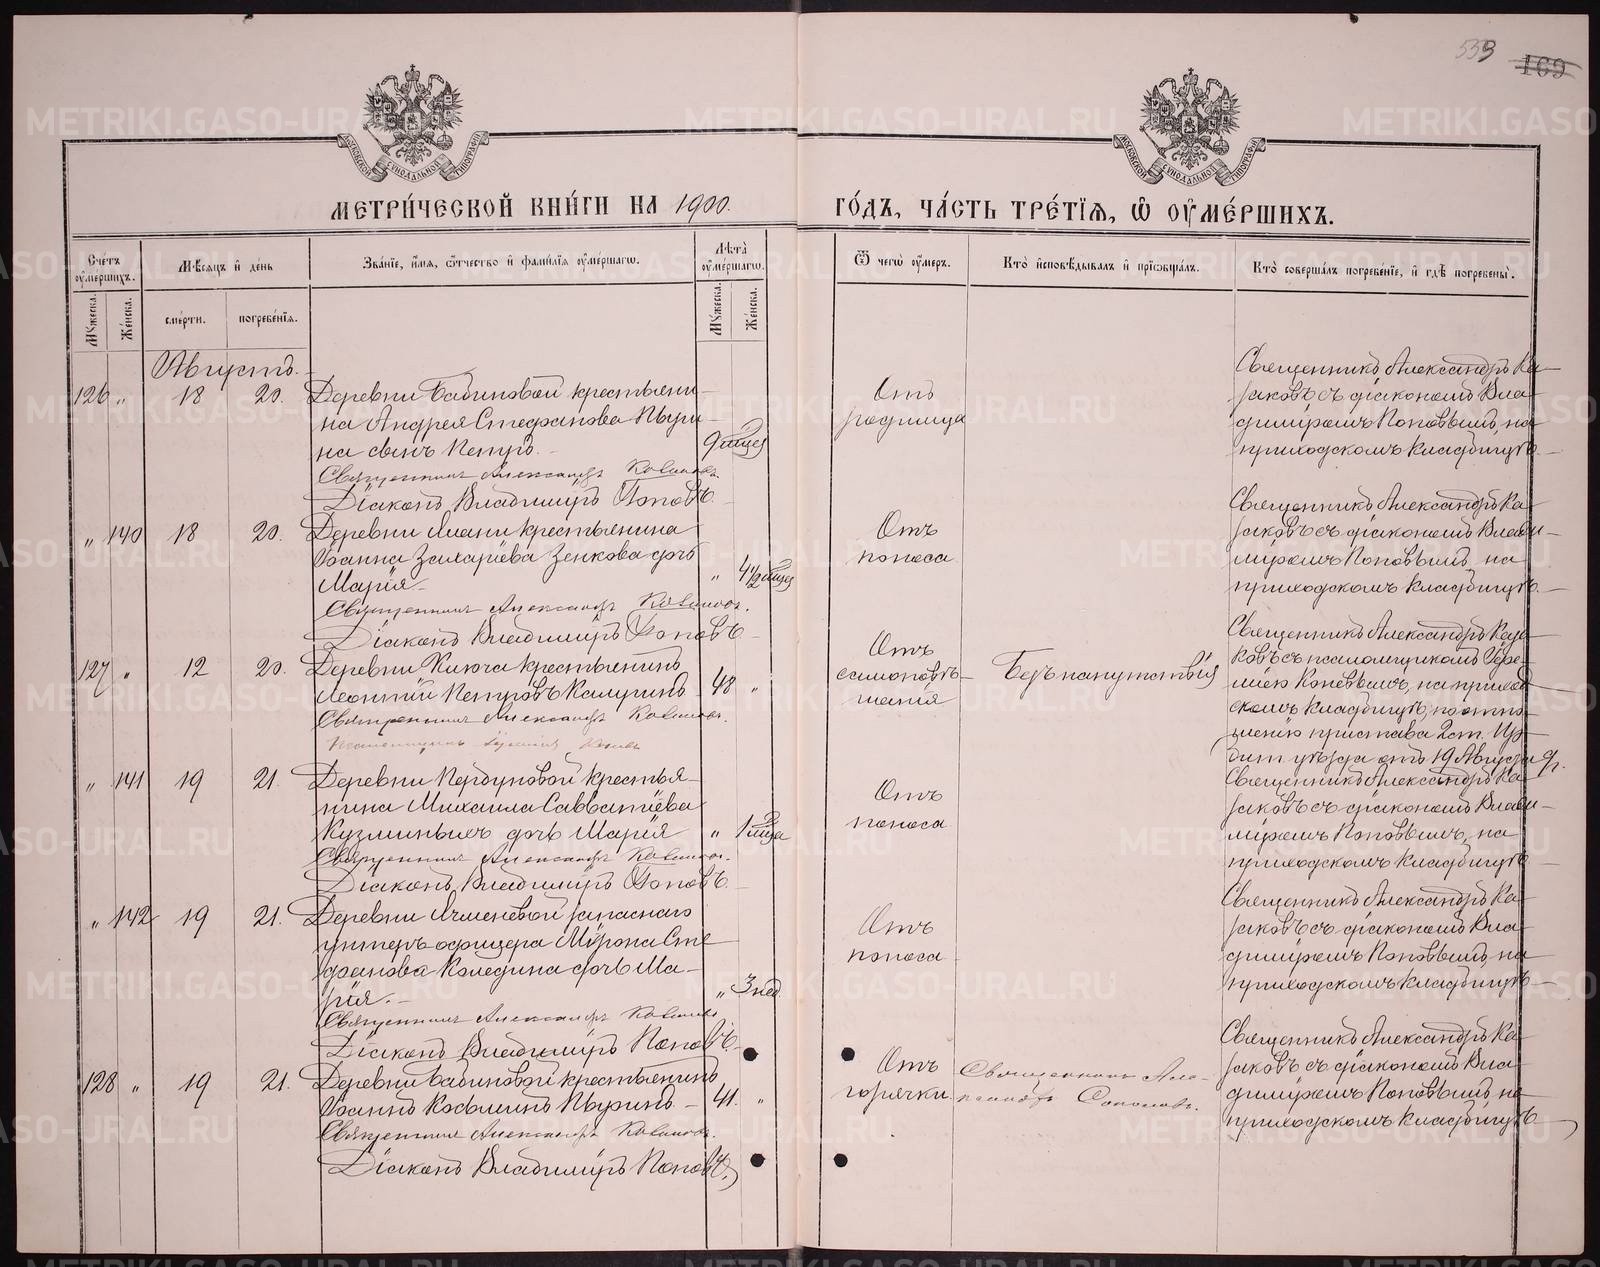 553
169
МОСКОВСКОЙ СѴНОДАЛЬНОЙ ТИПОГРАФІИ
МОСКОВСКОЙ СѴНОДАЛЬНОЙ ТИПОГРАФІИ
МЕТРИ́ЧЕСКОЙ КНИ́ГИ НА 1900.
ГО́ДЪ, ЧА́СТЬ ТРЕ́ТІѦ, Ѡ҆ ОУ҆МЕ́РШИХЪ.
Сче́тъ оу҆ме́ршихъ.
Мѣ́сѧцъ и҆ де́нь
Зва́нїе, и҆́мѧ, ѻ҆́тчество и҆ фами́лїѧ оу҆ме́ршагѡ.
Лѣ́та оу҆ме́ршагѡ.
Ѿ чегѡ̀ оу҆́меръ.
Кто̀ и҆сповѣ́дывалъ и҆ прїѡбща́лъ.
Кто̀ соверша́лъ погребе́нїе, и҆ гдѣ̀ погребены̀.
Му́жеска.
Же́нска.
сме́рти.
погребе́нїѧ.
Му́жеска.
Же́нска.
Августъ.
126 " 18 20. Деревни Бабиновой крестьяни-
на Андрея Стефанова Пьури-
на сынъ Петръ. 9 мѣсец
Священникъ Александръ Казаковъ.
Діаконъ Владиміръ Поповъ
Отъ
родимца
Священникъ Александръ Ка-
заковъ съ діакономъ Вла-
диміромъ Поповымъ, на
приходскомъ кладбищѣ.
" 140 18 20. Деревни Ялани крестьянина
Іоанна Захаріева Зенкова дочь
Марія " 4 1/2 мѣсец
Священникъ Александръ Казаковъ.
Діаконъ Владиміръ Поповъ
Отъ
поноса
Священникъ Александръ Ка-
заковъ съ діакономъ Влади-
міромъ Поповымъ, на
приходскомъ кладбищѣ.
127 " 12 20. Деревни Ключа крестьянинъ
Леонтій Петровъ 48 "
Священникъ Александръ Казаковъ.
Псаломщикъ
Отъ
самоповѣ-
шенія
Безъ напутствія
Священникъ Александръ Каза-
ковъ съ псаломщикомъ Іере-
міею Коневымъ, на приход-
скомъ кладбищѣ, по отно-
шенію пристава 2 ст. Ир-
бит. уѣзда отъ 19 Августа
" 141 19 21. Деревни крестья-
нина Михаила Савватіева
Кузминыхъ дочь Марія " 1 мѣсеца
Священникъ Александръ Казаковъ.
Діаконъ Владиміръ Поповъ
Отъ
поноса
Священникъ Александръ Ка-
заковъ съ діакономъ Влади-
міромъ Поповымъ, на
приходскомъ кладбищѣ
" 142 19 21. Деревни Ячменевой запаснаго
унтеръ-офицера Мѵрона Сте-
фанова Коледина дочь Ма-
рія. " 3 нед
Священникъ Александръ Казаковъ
Діаконъ Владиміръ Поповъ.
Отъ
поноса
Священникъ Александръ Ка-
заковъ съ діакономъ Вла-
диміромъ Поповымъ, на
приходскомъ кладбищѣ
128 " 19 21. Деревни Бабиновой крестьянинъ
Іоаннъ Пьуринъ 41. "
Священникъ Александръ Казаковъ.
Діаконъ Владиміръ Поповъ
Отъ
горячки
Священникъ Але-
ксандръ Соколовъ.
Священникъ Александръ Ка-
заковъ съ діакономъ Вла-
диміромъ Поповымъ, на
приходскомъ кладбищѣ
METRIKI.GASO-URAL.RU